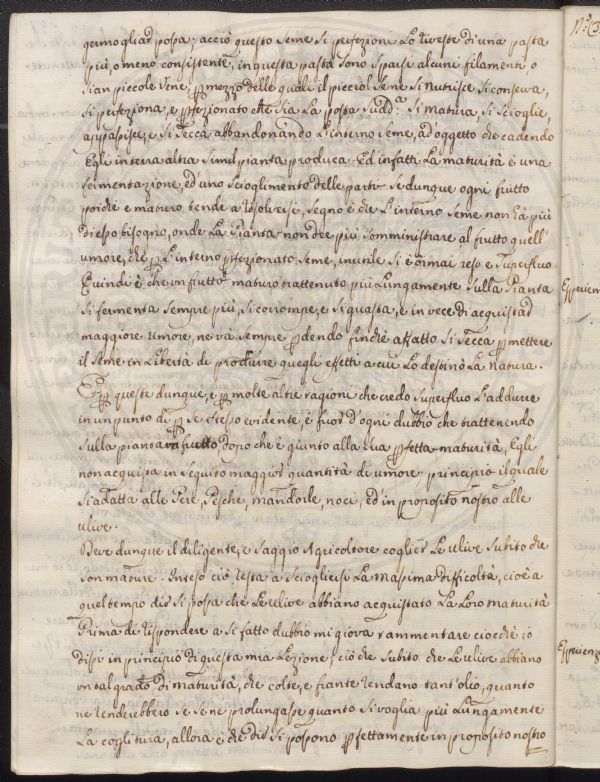 germogliar possa; acciò questo seme si perfezioni Lo riveste di una pasta
più, o meno consistente, in questa pasta sono sparse alcuni filamenti, o
sian piccole vene, p mezzo delle quali il picciol seme si nutrisce, si conserva,
si perfeziona, e pfezionato che sia La posta sudda. si matura, si scioglie,
appasisce, e si secca abbandonando L'interno seme, ad oggetto che cadendo
Egli in terra altra simil pianta produca. Ed infatti La maturità è una
fermentazione, ed uno scioglimento delle parti. Se dunque ogni frutto
poiche è maturo tende a risolversi, segno è che L'interno seme non hà più
di esso bisogno, onde La Pianta non dee più somministrare al frutto quell'
umore, che p L'interno pfezionato seme, inutile si è ormai reso e superfluo
Quindi è, che un frutto maturo trattenuto più Lungamente sulla Pianta
si fermenta sempre più, si corrompe, e si guasta, e in vece di acquistar
maggiore umore, ne và sempre pdendo finchè affatto si secca p mettere
il seme in Libertà di produrre quegli effetti a cui Lo destinò La natura.
E p queste dunque, e p molte altre ragioni che credo superfluo L'addurre
in un punto di p se stesso evidente, è fuor d'ogni dubbio che trattenendo
sulla pianta un frutto, dopo che è giunto alla sua pfetta maturità, Egli
non acquista in seguito maggior quantità di umore; principio il quale
si adatta alle Pere, Pesche, mandorle, noci, ed in proposito nostro alle
ulive.
Deve dunque il diligente, e saggio Agricoltore coglier Le ulive subito che
son mature. Inteso ciò resta a sciogliersi La massima difficoltà, cioè a
quel tempo dir si possa che Le ulive abbiano acquistato La Loro maturità
Prima di rispondere a si fatto dubbio mi giova rammentare ciocchè io
dissi in principio di questa mia Lezione; ciò che subito che Le ulive abbiano
un tal grado di maturità, che colte, e frante rendano tant'olio, quanto
ne renderebbero se se ne prolungasse quanto si voglia più Lungamente
La coglitura, allora è che dir si possono pfettamente in proposito nostro
N.° (3
Esperien
Esperienz